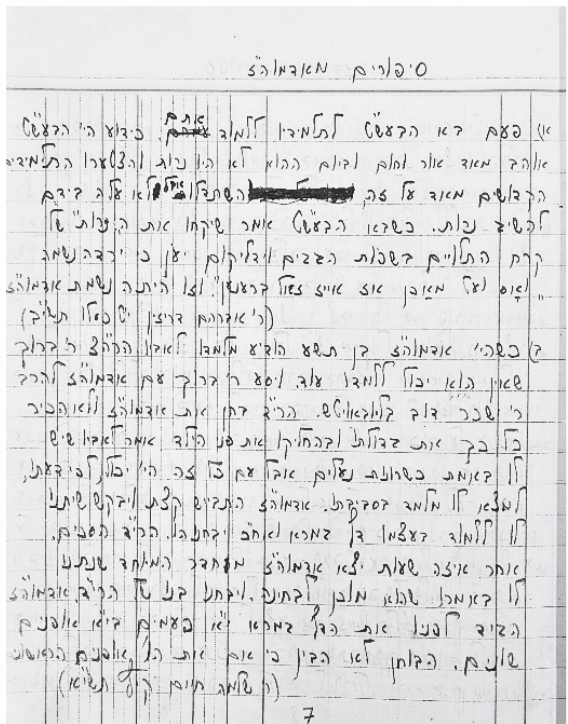 סיפורים מאדמוה"ז
א) פעם בא הבעש"ט לתלמידיו ללמוד אתם. כידוע הי' הבעש"ט
אוהב מאד אור וחום וביום ההוא לא היו נרות והצטערו התלמידים
הקדושים מאד על זה השתדלו אבל לא עלה בידם
להשיג נרות. כשבא הבעש"ט אמר שיקחו את ה"נרות" של
קרח התלויים בשכות הגגים וידליקום יען כי ירדה נשמה
"וואָס וועט מאַכן אז אייז זאל ברענען". וזו היתה נשמת אדמוה"ז
(ר' אברהם דריזין י"ט כסלו תשי"ב)
ב) כשהי' אדמוה"ז בן תשע הודיע מלמדו לאביו הרה"צ ר' ברוך
שאין הוא יכול ללמדו עוד ויסע ר' ברוך עם אדמוה"ז להרב
ר' ישכר דוב בליובאוויטש. הרי"ד בחן את אדמוה"ז ולא הכיר
כל כך את גדולתו ובהחליקו את פני הילד אמר לאביו שיש
לו באמת כשרונות נעלים אבל עם כל זה הי' יכול, לפי דעתו,
למצא לו מלמד בסביבתו. אדמוה"ז התבייש קצת ויבקש שיתנו
לו ללמוד בעצמו דף גמרא ואח"כ יבחנוהו. הרי"ד הסכים.
אחר איזה שעות יצא אדמוה"ז מחדר המיוחד שנתנו
לו באמרו שהוא מוכן לבחינה. ויבחנו בנו של הרי"ד, אדמוה"ז
הגיד לפניו את הדף גמרא י"א פעמים בי"א אופנים
שונים. הבוחן לא הבין כי אם את הג' אופנים הראשונים
(ר' שלמה חיים קיץ תשי"א)
7